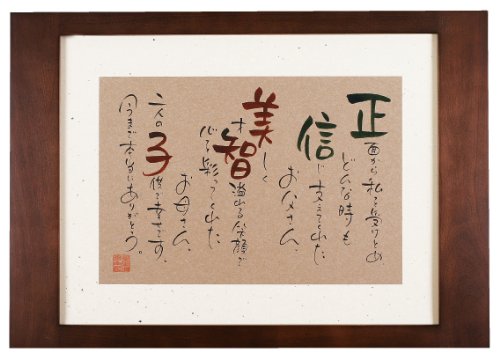 正面から私を受けとめ
どんな時も
信じ支えてくれた
お父さん
美しく
才智溢れる笑顔で
心を彩ってくれた
お母さん、
二人の子供で幸せです。
今まで本当にありがとう。